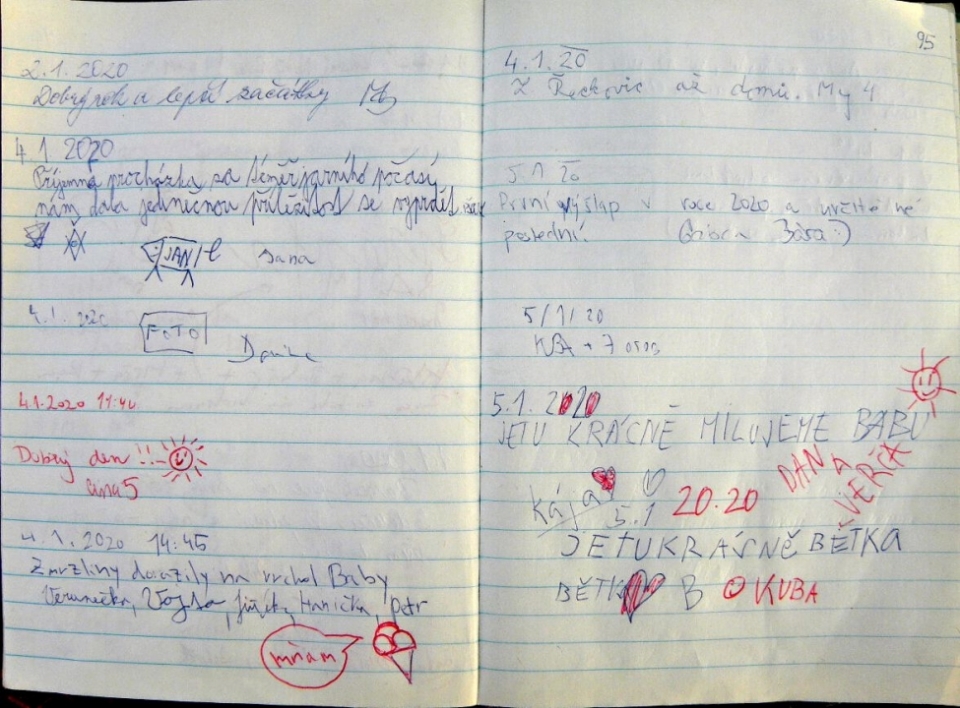 2.1.2020
Dobrý rok a lepší začátky
4.1.2020
Příjemná procházka za téměř jarního počasí
nám dala jedinečnou příležitost se
JANIE Jana
4.1.2020 FOTO
4.1.2020 11:40
Dobrý den !!
4.1.2020 14:45
Zmrzliny dorazily na vrchol Baby
Verunečka, Vojta, Jiřík, Hanička, Petr
mňam
95
4.1.20
Z Řečkovic až domů. My 4
5.1.20
První výšlap v roce 2020 a určitě ne
poslední. Bára :)
5/1/20
+ 7 osob
5.1.2020
JETU KRÁCNĚ MILUJEME BABU
Kája
5.1 20.20
DAN A VERČA
JE TU KRÁSNĚ BĚTKA
BĚTK B KUBA